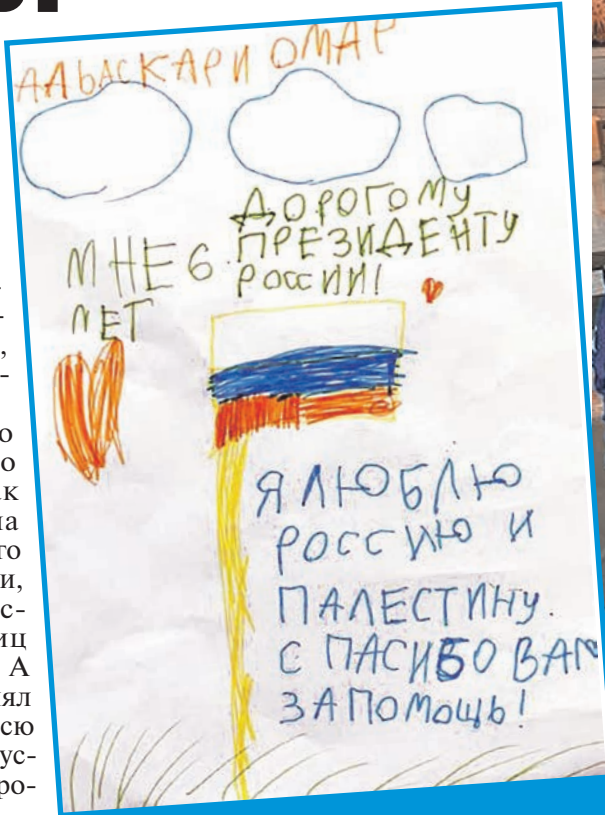 АЛЬАСКАРИ ОМАР
ДОРОГОМУ
ПРЕЗИДЕНТУ
РОССИИ!
МНЕ 6
ЛЕТ
Я ЛЮБЛЮ
РОССИЮ И
ПАЛЕСТИНУ.
С ПАСИБО ВАМ
ЗА ПОМОЩЬ!
о
о
ак
на
го
и,
с-
иц
А
ял
сю
ус-
ро-